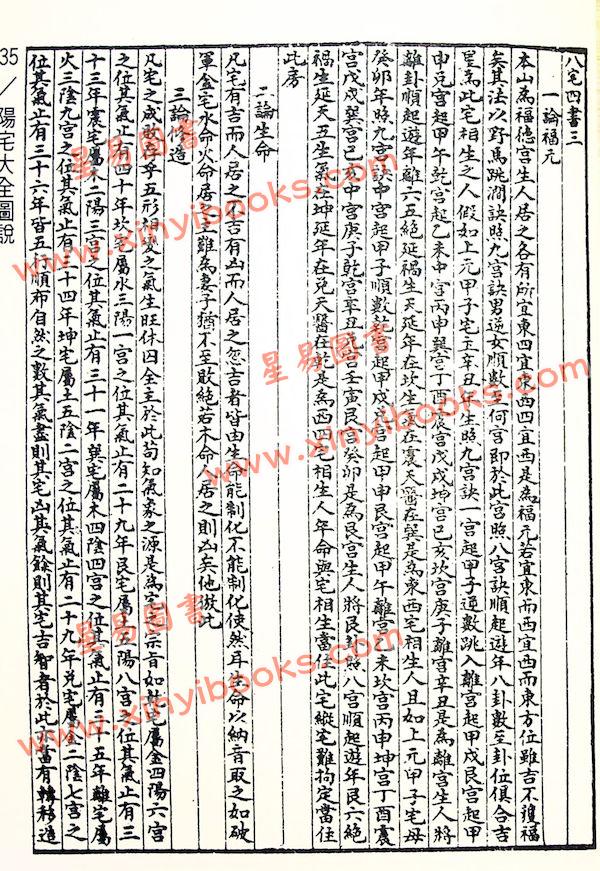 八宅四書三
一論福元
本山為福德宮生人居之各有所宜東四宜東西四宜西是為福元若宜東而西宜西而東方位雖吉不獲福
矣其法以野馬跳澗訣照九宮訣男逆女順數至何宮即於此宮照八宮訣順起遊年八卦數至卦位俱合吉
星為此宅相生之人假如上元甲子宅主辛丑年生照九宮訣一宮起甲子逆數跳入離宮起甲戌艮宮起甲
申兌宮起甲午乾宮起乙未中宮丙申巽宮丁酉震宮戊戌坤宮己亥坎宮庚子離宮辛丑是為離宮生人將
離卦順起遊年離六五絕延禍生天延年在坎生氣在震天醫在巽是為東四宅相生人且如上元甲子宅母
癸卯年照九宮訣中宮起甲子順數乾宮起甲戌兌宮起甲申艮宮起甲午離宮乙未坎宮丙申坤宮丁酉震
宮戊戌巽宮己亥中宮庚子乾宮辛丑兌宮壬寅艮宮癸卯是為艮宮生人將艮卦照八宮順起遊年艮六絕
禍生延天五生氣在坤延年在兌天醫在乾是為西四宅相生人年命與宅相生當住此宅縱宅難拘定當住
此房
二論生命
凡宅有吉而人居之不吉有凶而人居之忽吉者皆由生命能制化不能制化使然耳生命以納音取之如破
軍金宅水命火命居之主難為妻子猶不至敗絕若木命人居之則凶矣他倣此
三論修造
凡宅之成敗存乎五形相變之氣生旺休囚全主於此苟知氣數之源是為宅之宗旨如乾宅屬金四陽六宮
之位其氣止有四十年坎宅屬水三陽一宮之位其氣止有二十九年艮宅屬土五陽八宮之位其氣止有三
十三年震宅屬木二陽三宮之位其氣止有三十一年巽宅屬木四陰四宮之位其氣止有二十五年離宅屬
火三陰九宮之位其氣止有二十四年坤宅屬土五陰二宮之位其氣止有二十九年兌宅屬金二陰七宮之
位其氣止有三十六年皆五行順布自然之數其氣盡則其宅凶其氣餘則其宅吉智者於此亦當有轉移造
35／陽宅大全圖說
星易圖書
www.xinyibooks.com
星易圖書
www.xinyibooks.com
星易圖書
www.xinyibooks.com